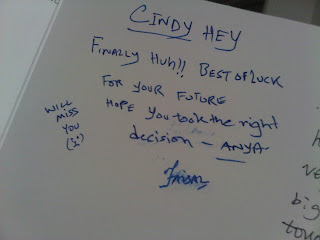 CINDY HEY
FINALLY HUH!! BEST OF LUCK
FOR YOUR FUTURE
HOPE You took the right
decision - ANYA
WILL
MISS
YOU
big